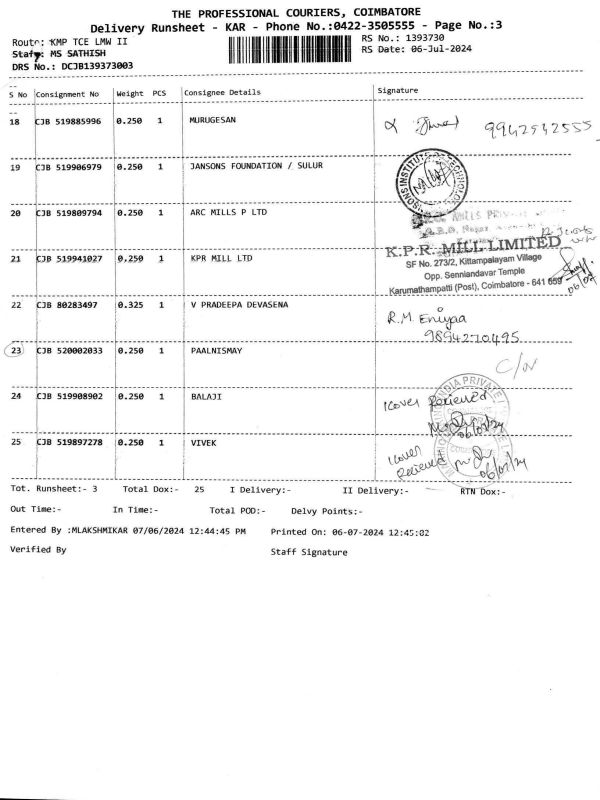 THE PROFESSIONAL COURIERS, COIMBATORE
Delivery Runsheet - KAR - Phone No.:0422-3505555 - Page No.:3
Route: KMP TCE LMW II
RS No.: 1393730
Staff: MS SATHISH
RS Date: 06-Jul-2024
DRS No.: DCJB139373003
S No Consignment No Weight PCS Consignee Details Signature
18 CJB 519885996 0.250 1 MURUGESAN 9942542555
19 CJB 519906979 0.250 1 JANSONS FOUNDATION / SULUR
INSTITUTE OF TECHNOLOGY
20 CJB 519809794 0.250 1 ARC MILLS P LTD
MILLS
21 CJB 519941027 0.250 1 KPR MILL LTD
K.P.R. MILL LIMITED
SF No. 273/2, Kittampalayam Village
Opp. Senniandavar Temple
Karumathampatti (Post), Coimbatore - 641 659
22 CJB 80283497 0.325 1 V PRADEEPA DEVASENA
R.M.
9894270495
23 CJB 520002033 0.250 1 PAALNISMAY
24 CJB 519908902 0.250 1 BALAJI
1 cover Recieved
06/07/24
INDIA PRIVATE
25 CJB 519897278 0.250 1 VIVEK
1 cover
Recieved
06/07/24
Tot. Runsheet:- 3 Total Dox:- 25 I Delivery:- II Delivery:- RTN Dox:-
Out Time:- In Time:- Total POD:- Delvy Points:-
Entered By :MLAKSHMIKAR 07/06/2024 12:44:45 PM Printed On: 06-07-2024 12:45:02
Verified By Staff Signature